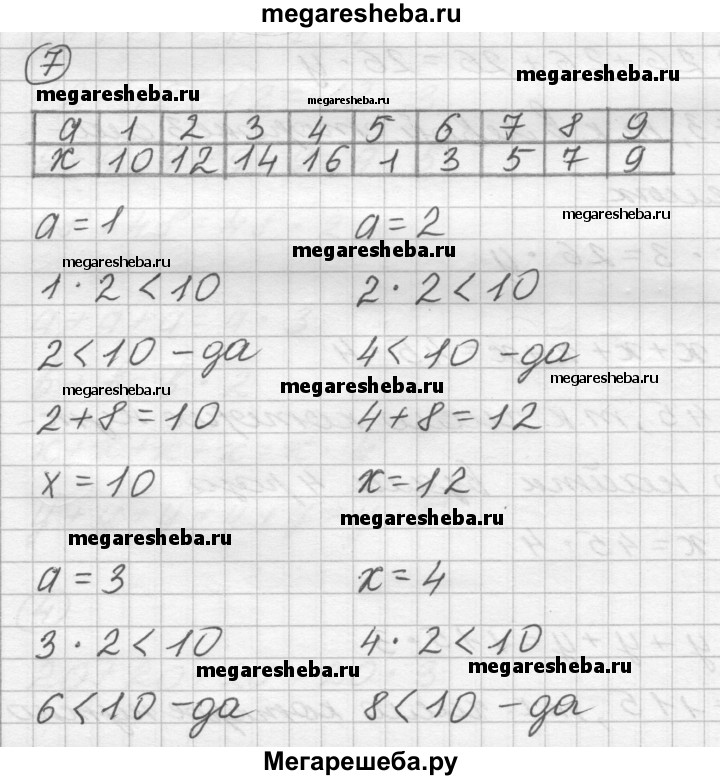 megaresheba.ru
7
megaresheba.ru
megaresheba.ru
megaresheba.ru
a 1 2 3 4 5 6 7 8 9
x 10 12 14 16 1 3 5 7 9
a = 1 a = 2
megaresheba.ru
megaresheba.ru
megaresheba.ru
1 · 2 < 10 2 · 2 < 10
2 < 10 - да 4 < 10 - да
megaresheba.ru
megaresheba.ru
megaresheba.ru
2 + 8 = 10 4 + 8 = 12
x = 10 x = 12
megaresheba.ru
megaresheba.ru
a = 3 x = 4
3 · 2 < 10 4 · 2 < 10
megaresheba.ru
megaresheba.ru
6 < 10 - да 8 < 10 - да
Мегарешеба.ру